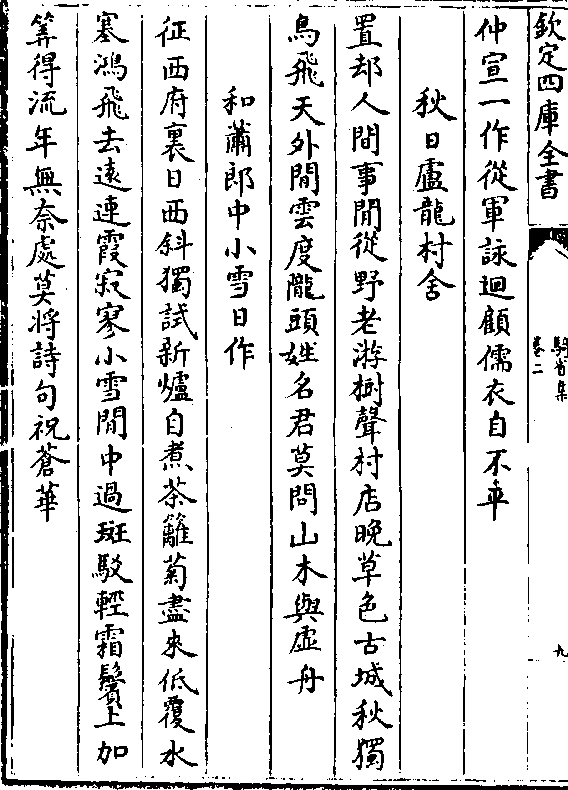 欽定四庫全書
騎省集
卷二
九
仲宣一作從軍詠迴顧儒衣自不平
秋日盧龍村舍
置却人間事閒從野老游樹聲村店晚草色古城秋獨
鳥飛天外閒雲度隴頭姓名君莫問山木與虛舟
和蕭郎中小雪日作
征西府裏日西斜獨試新爐自煮茶籬菊盡來低覆水
塞鴻飛去遠連霞寂寥小雪閒中過斑駁輕霜鬢上加
筭得流年無奈處莫將詩句祝蒼華